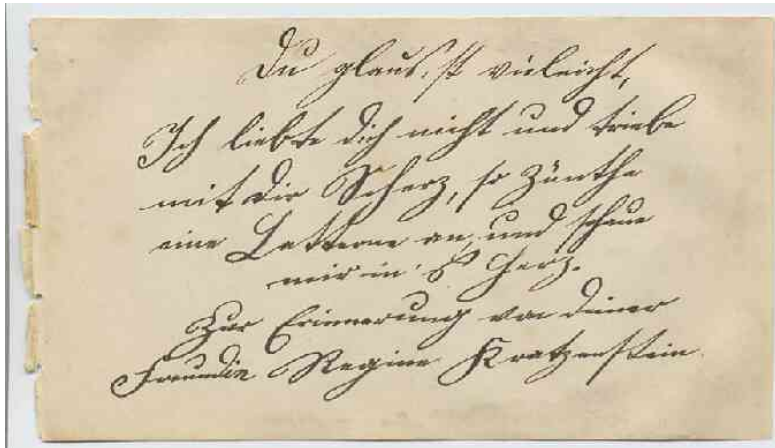 Du glaubst vieleicht,
Ich liebte dich nicht und triebe
mit dir Scherz, so zünthe
eine Latterne an, und schaue
mir in's Herz.
Zur Erinnerung von deiner
Freundin Regine Kratzenstein